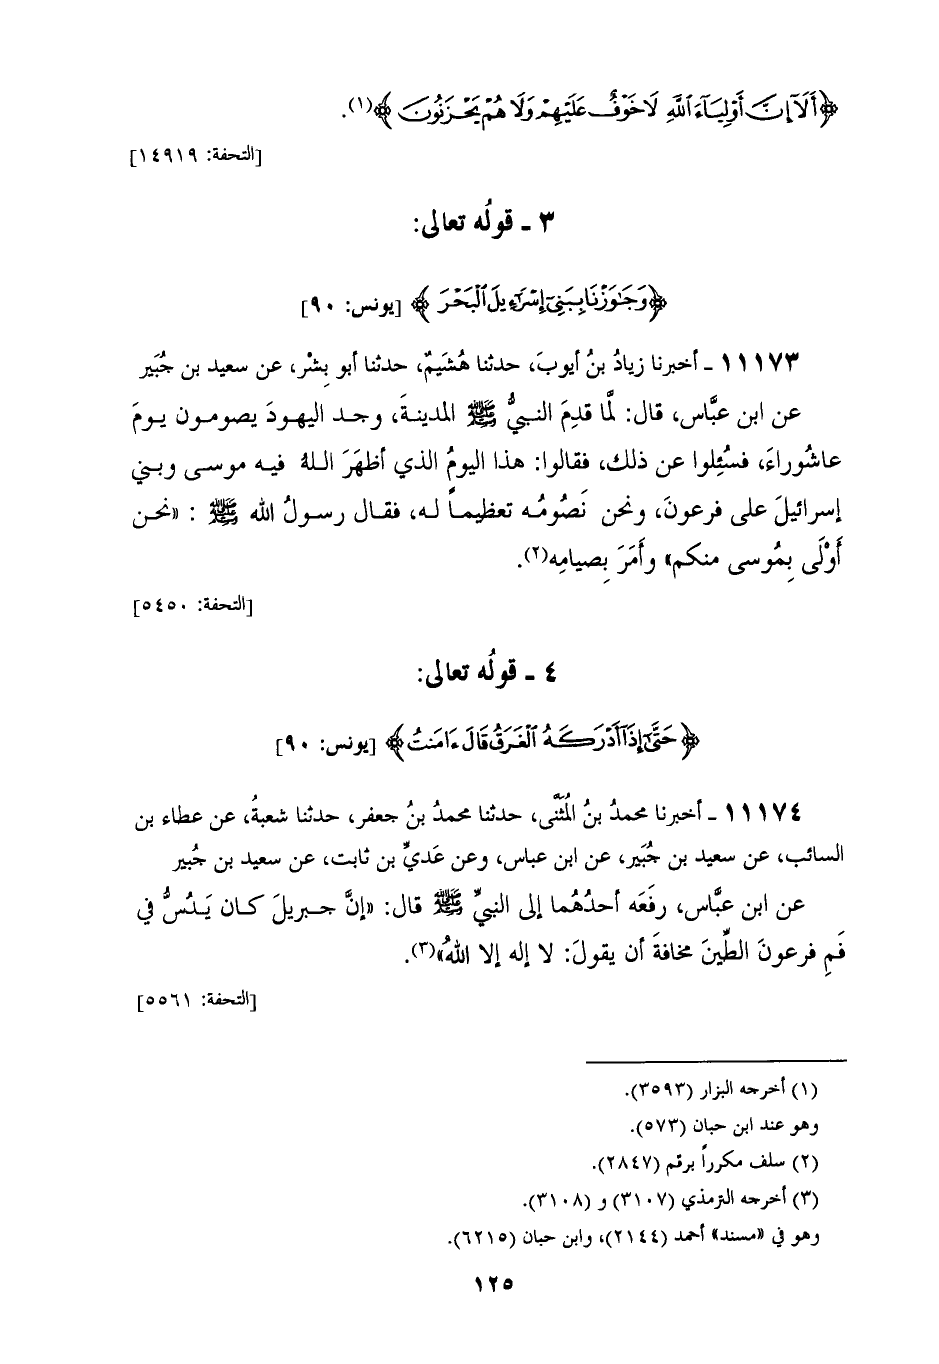 ﴿أَلَآ إِنَّ أَوْلِيَآءَ ٱللَّهِ لَا خَوْفٌ عَلَيْهِمْ وَلَا هُمْ يَحْزَنُونَ﴾(١).
[التحفة: ١٤٩١٩]
٣ ـ قولُه تعالى:
﴿وَجَٰوَزْنَا بِبَنِىٓ إِسْرَٰٓءِيلَ ٱلْبَحْرَ﴾ [يونس: ٩٠]
١١١٧٣ ـ أخبرنا زيادُ بنُ أيوبَ، حدثنا هُشَيمٌ، حدثنا أبو بِشْر، عن سعيد بن جُبَير
عن ابن عبَّاس، قال: لَّما قدِمَ النبيُّ ﷺ المدينةَ، وجد اليهودَ يصومون يومَ
عاشُوراءَ، فسُئِلوا عن ذلك، فقالوا: هذا اليومُ الذي أظهَرَ اللهُ فيه موسى وبني
إسرائيلَ على فرعونَ، ونحن نَصُومُه تعظيماً له، فقال رسولُ الله ﷺ : «نحن
أَوْلَى بِمُوسى منكم» وأَمَرَ بِصيامِه(٢).
[التحفة: ٥٤٥٠]
٤ ـ قولُه تعالى:
﴿حَتَّىٰٓ إِذَآ أَدْرَكَهُ ٱلْغَرَقُ قَالَ ءَامَنتُ﴾ [يونس: ٩٠]
١١١٧٤ ـ أخبرنا محمدُ بنُ المُثَنَّى، حدثنا محمدُ بنُ جعفر، حدثنا شعبةُ، عن عطاء بن
السائب، عن سعيد بن جُبَير، عن ابن عباس، وعن عَديِّ بن ثابت، عن سعيد بن جُبير
عن ابن عبَّاس، رفَعَه أحدُهُما إلى النبيِّ ﷺ قال: «إنَّ جبريلَ كان يَدُسُّ في
فَمِ فرعونَ الطِّينَ مخافةَ أن يقولَ: لا إله إلا اللهُ»(٣).
[التحفة: ٥٥٦١]
(١) أخرجه البزار (٣٥٩٣).
وهو عند ابن حبان (٥٧٣).
(٢) سلف مكرراً برقم (٢٨٤٧).
(٣) أخرجه الترمذي (٣١٠٧) و (٣١٠٨).
وهو في «مسند» أحمد (٢١٤٤)، وابن حبان (٦٢١٥).
١٢٥